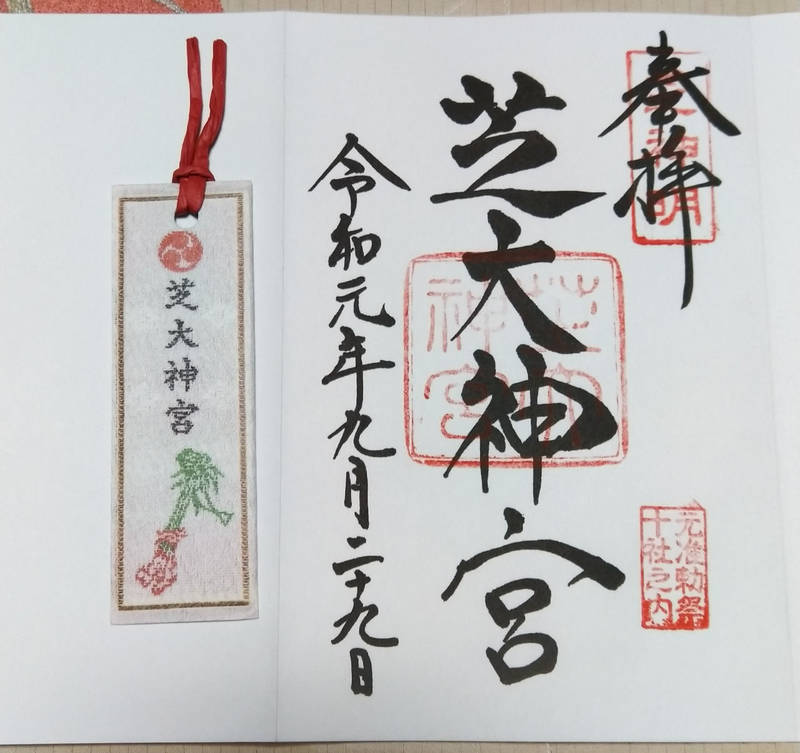 奉拝
芝大神宮
令和元年九月二十九日
元准勅祭
十社之内
芝大
神宮
芝大神宮